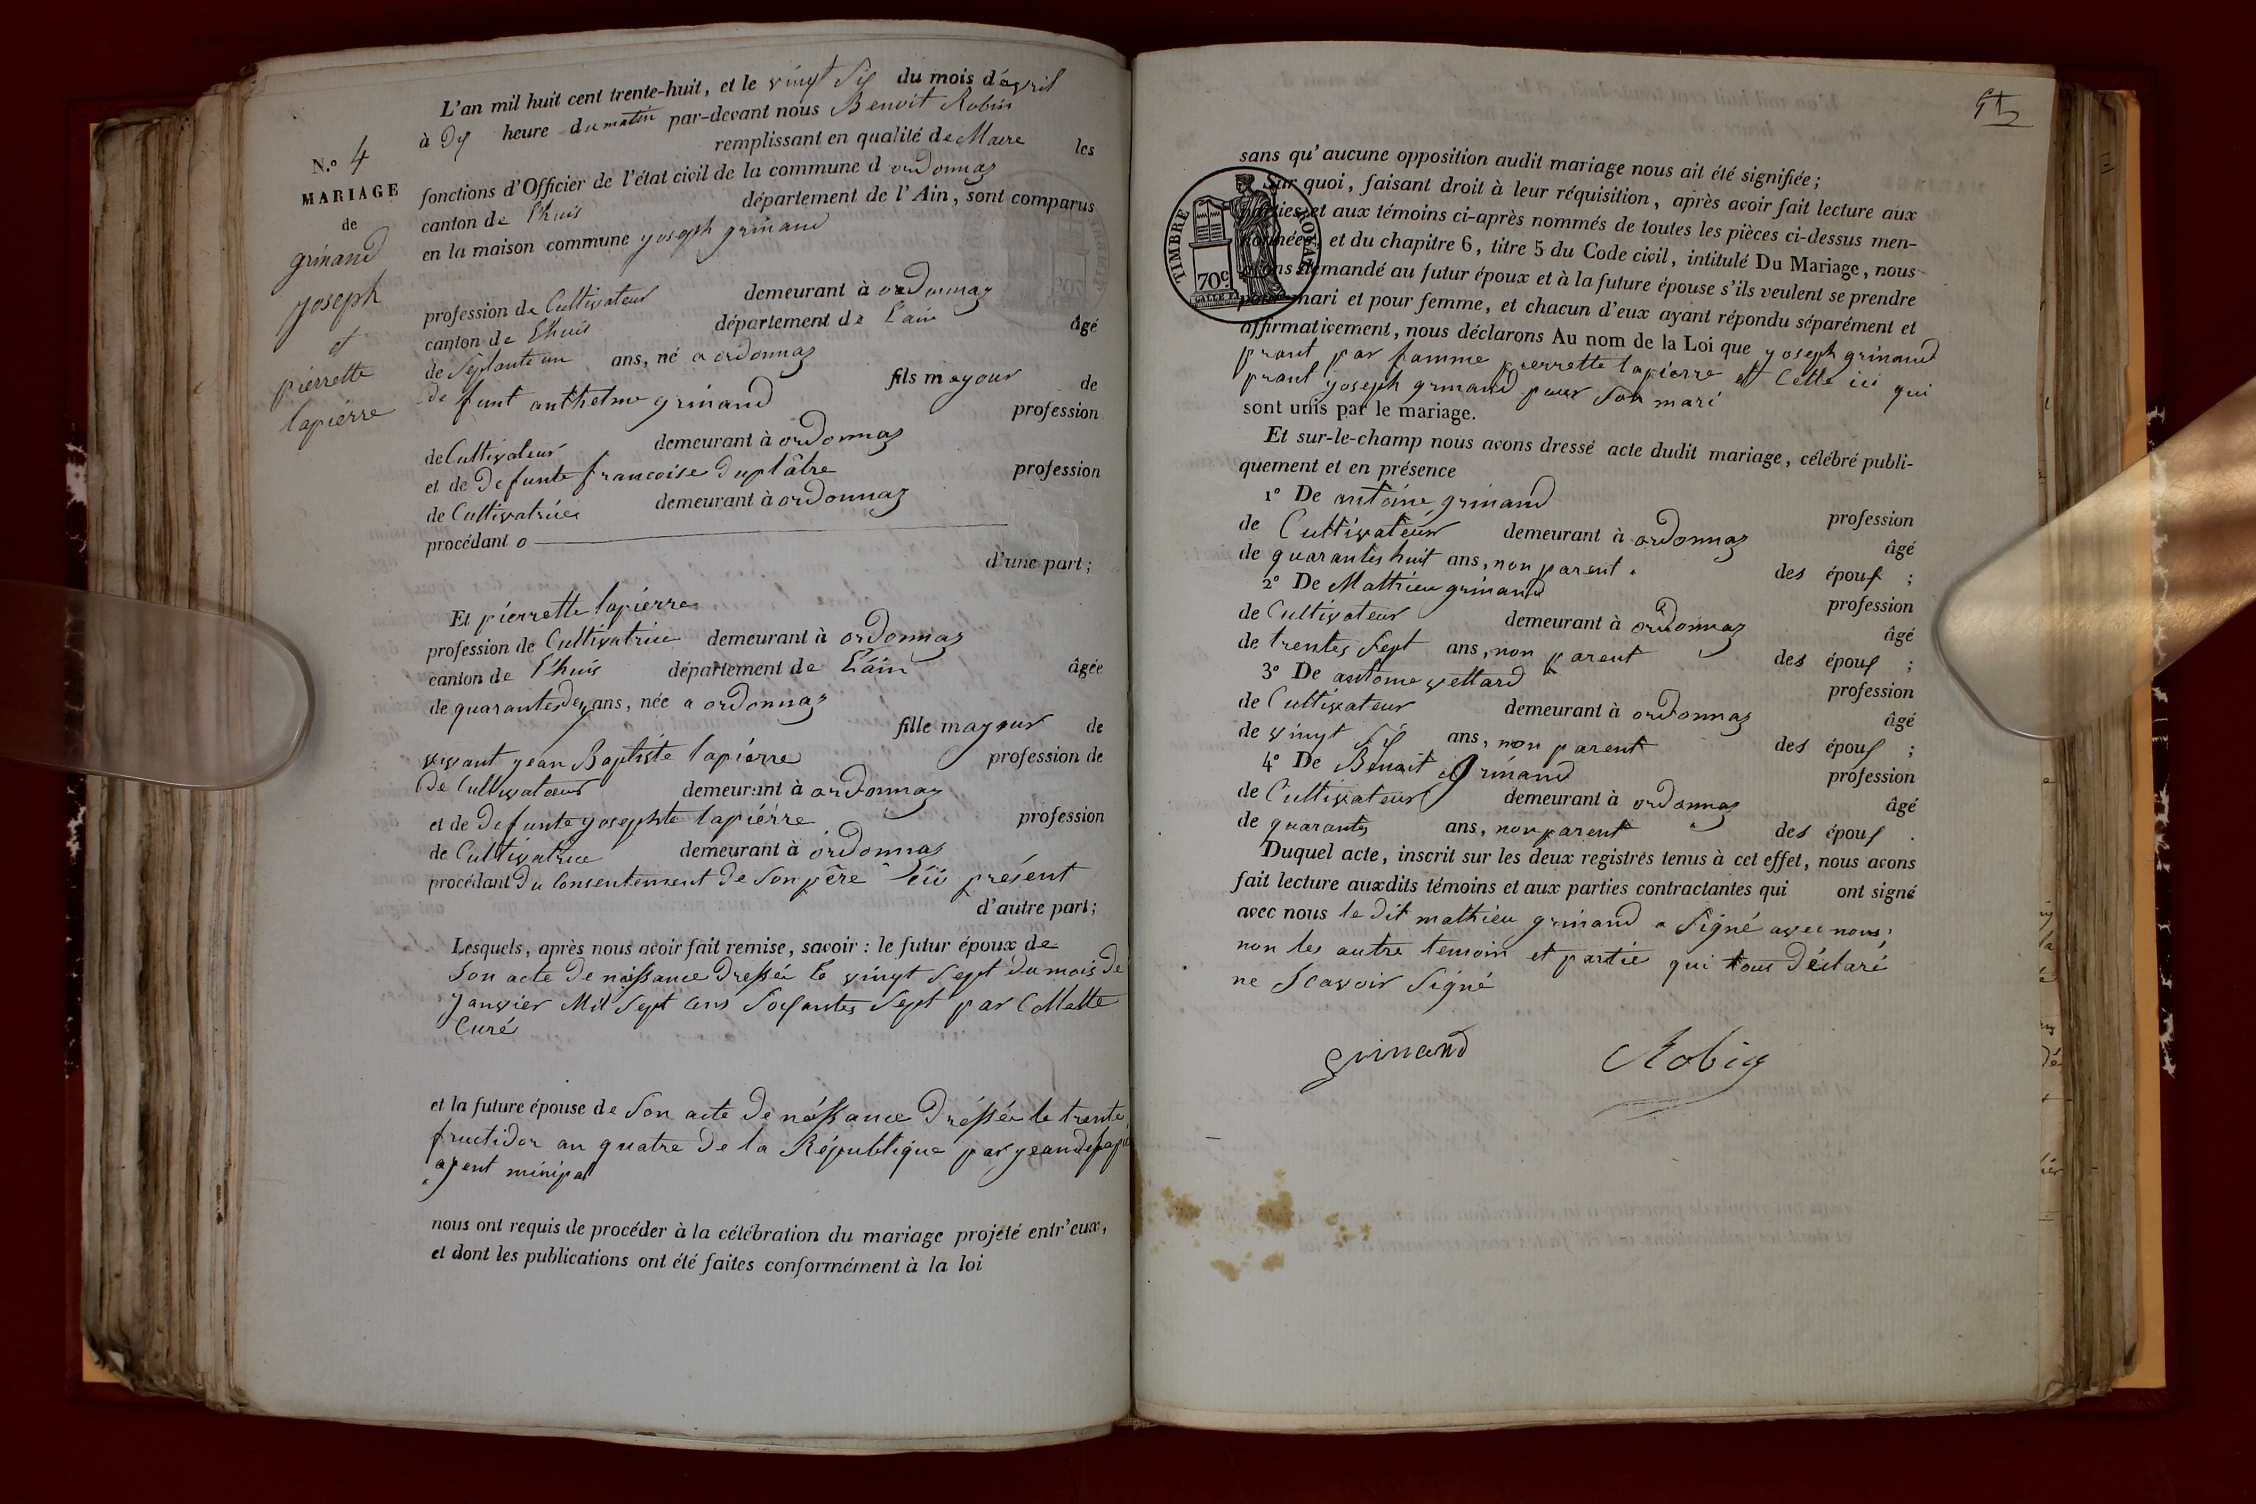 N.o 4
MARIAGE
de
grinand
joseph
et
pierrette
lapierre
L'an mil huit cent trente-huit, et le vingt Six du mois d'avril
à Dix heure du matin par-devant nous Benoit Robin
remplissant en qualité de Maire les
fonctions d'Officier de l'état civil de la commune d ordonnaz
canton de l'huis département de l'Ain, sont comparus
en la maison commune joseph grinand
profession de Cultivateur demeurant à ordonnaz
canton de Lhuis département de L'ain âgé
de Septante un ans, né a ordonnaz
fils mayour de
de funt anthelme grinand profession
de Cultivateur demeurant à ordonnaz
et de Defunte francoise Duplâtre profession
de Cultivatrice demeurant à ordonnaz
procédant o
d'une part;
Et pierrette lapierre
profession de Cultivatrice demeurant à ordonnaz
canton de l'huis département de L'ain âgée
de quarantes Deux ans, née a ordonnaz
fille mayour de
vivant jean Baptiste lapiérre profession de
De Cultivateur demeurant à ordonnaz
et de Defunte josephte lapiérre profession
de Cultivatrice demeurant à ordonnaz
procédant Du Consentement De Son pére icii présent
d'autre part;
Lesquels, après nous avoir fait remise, savoir : le futur époux de
Son acte De naissance Dressée le vingt Sept Du mois De
Janvier Mil Sept Cens Soixantes Sept par Collette
Curé
et la future épouse de Son acte De néssance Dréssée le trente
fructidor an quatre De la République par jean
agent minipal
nous ont requis de procéder à la célébration du mariage projeté entr'eux,
et dont les publications ont été faites conformément à la loi
sans qu'aucune opposition audit mariage nous ait été signifiée;
Sur quoi, faisant droit à leur réquisition, après avoir fait lecture aux
parties et aux témoins ci-après nommés de toutes les pièces ci-dessus men-
tionnées, et du chapitre 6, titre 5 du Code civil, intitulé Du Mariage, nous
avons demandé au futur époux et à la future épouse s'ils veulent se prendre
pour mari et pour femme, et chacun d'eux ayant répondu séparément et
affirmativement, nous déclarons Au nom de la Loi que joseph grinand
prant par famme pierrette lapierre et Cette ici qui
prant joseph grinand pour Son mari
sont unis par le mariage.
TIMBRE ROYAL
70c
Et sur-le-champ nous avons dressé acte dudit mariage, célébré publi-
quement et en présence
1o De antoine grinand profession
de Cultivateur demeurant à ordonnaz âgé
de quarantes huit ans, non parent des époux ;
2o De Mathieu grinand profession
de Cultivateur demeurant à ordonnaz âgé
de trentes Sept ans, non parent des époux ;
3o De antoine vettard profession
de Cultivateur demeurant à ordonnaz âgé
de vingt Six ans, non parent des époux ;
4o De Benoit Grinand profession
de Cultivateur demeurant à ordonnaz âgé
de quarantes ans, non parent des époux .
Duquel acte, inscrit sur les deux registres tenus à cet effet, nous avons
fait lecture auxdits témoins et aux parties contractantes qui ont signé
avec nous le dit mathieu grinand a Signé avec nous;
non les autre temoin et partie qui tous Déclaré
ne Scavoir Signé
grinand Robin